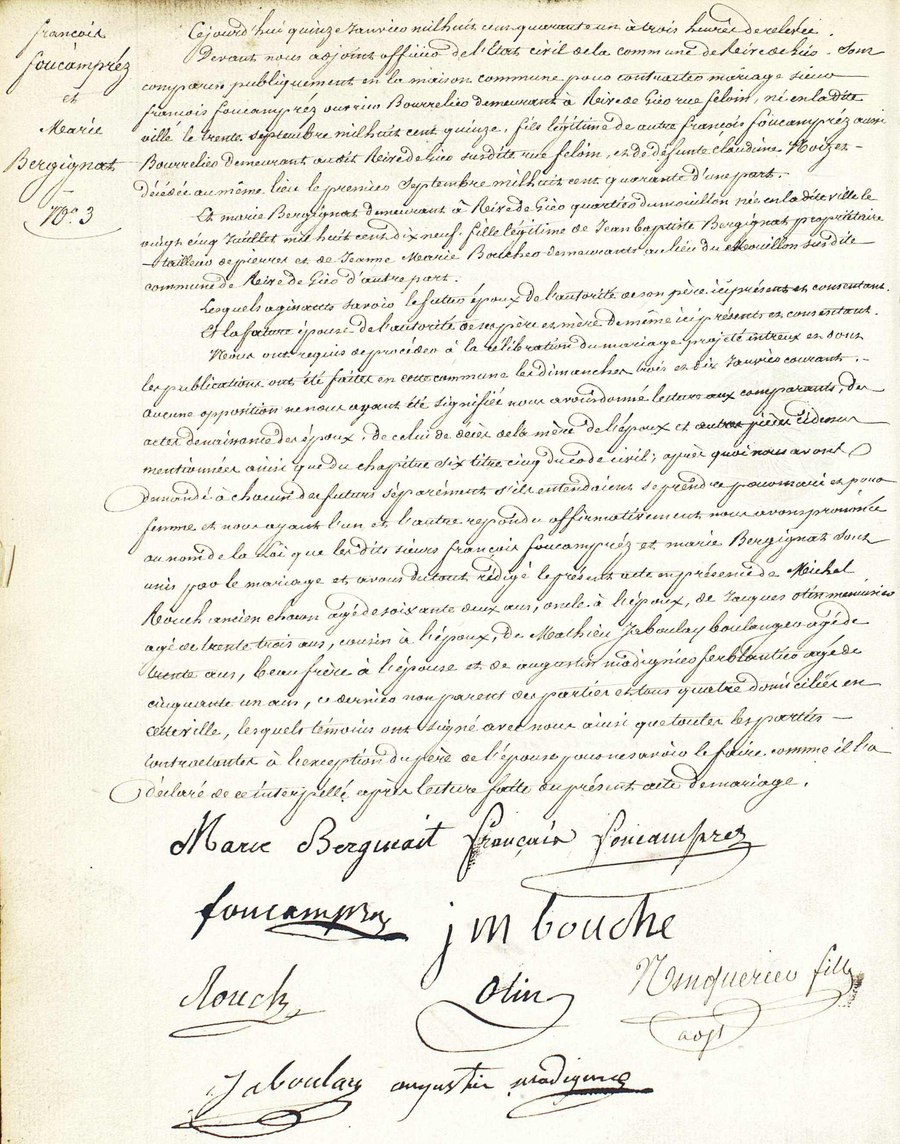 françois
foucamprez
et
Marie
Bergignat
N.o 3
Cejourd'hui quinze Janvier mil huit cent quarante un à trois heures de relevée.
Devant nous adjoint officier de l'état civil de la commune de Rive de Gier. Sont
comparus publiquement en la maison commune pour contracter mariage sieur
françois foucamprez ouvrier Bourrelier demeurant à Rive de Gier rue feloin, né en la dite
ville le trente Septembre mil huit cent quinze, fils légitime de autre françois foucamprez aussi
Bourrelier demeurant audit Rive de Gier susdite rue feloin, et de défunte claudine
décédée au même lieu le premier Septembre mil huit cent quarante d'une part.
Et marie Bergignat demeurant à Rive de Gier quartier du mouillon née en la dite ville le
vingt cinq Juillet mil huit cent dix neuf, fille légitime de Jean baptiste Bergignat propriétaire
tailleur de pierres et de Jeanne Marie Boucher demeurants au lieu du Mouillon susdite
commune de Rive de Gier d'autre part.
Lesquels agissants savoir le futur époux de l'autorité de son père ici présent et consentant.
Et la future épouse de l'autorité de ses père et mère de même ici présents et consentant.
Nous ont requis de procéder à la célébration du mariage projeté entreux et dont
les publications ont été faites en cette commune les dimanches trois et dix Janvier courant.
aucune opposition ne nous ayant été signifiée nous avons donné lecture aux comparants, des
actes de naissance des époux, de celui de décès de la mère de l'époux et autres pièces cidessus
mentionnées ainsi que du chapitre six titre cinq du code civil; après quoi nous avons
demandé à chacun des futurs séparément s'ils entendaient se prendre pour mari et pour
femme et nous ayant l'un et l'autre repondu affirmativement nous avons prononcé
au nom de la Loi que les dits sieurs françois foucampréz et marie Bergignat sont
unis par le mariage et avons du tout rédigé le présent acte en présence de Michel
Rouch ancien charon agé de soixante deux ans, oncle à l'époux, de Jacques otin menuisier
agé de trente trois ans, cousin à l'époux, de Mathieu Jaboulay boulanger agé de
trente ans, beau frère à l'épouse et de augustin madignier ferblantier agé de
cinquante un ans, ce dernier non parent des parties et tous quatre domiciliés en
cette ville, lesquels témoins ont signé avec nous ainsi que toutes les parties
contractantes à l'exception du père de l'épouse pour ne savoir le faire comme il l'a
déclaré de ce interpellé après lecture faite du présent acte de mariage.
Marie Bergniait françois foucamprez
foucamprez j m bouche
Rouch Otin fils
adjt
Jaboulay augustin madignier